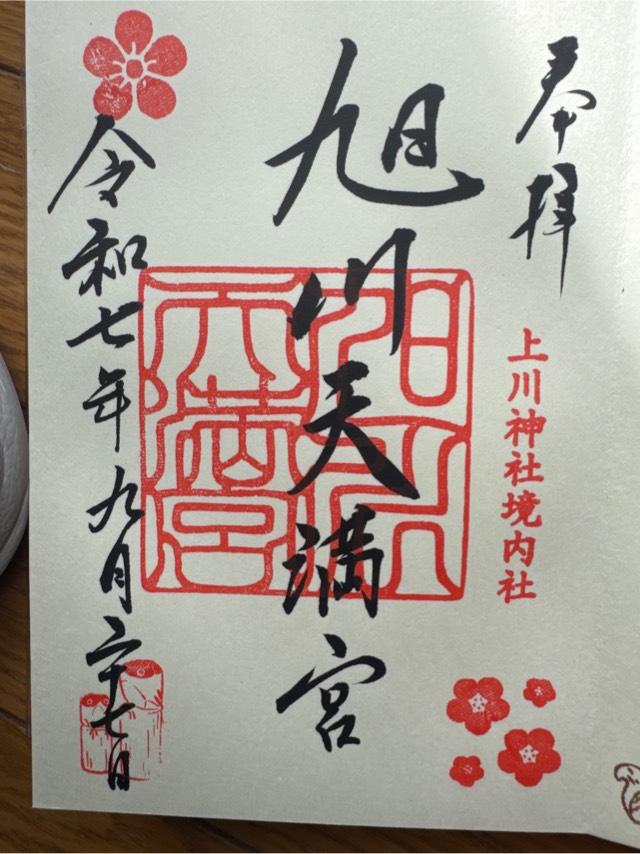 奉拝
上川神社境内社
旭川天満宮
旭川天満宮
令和七年九月二十七日